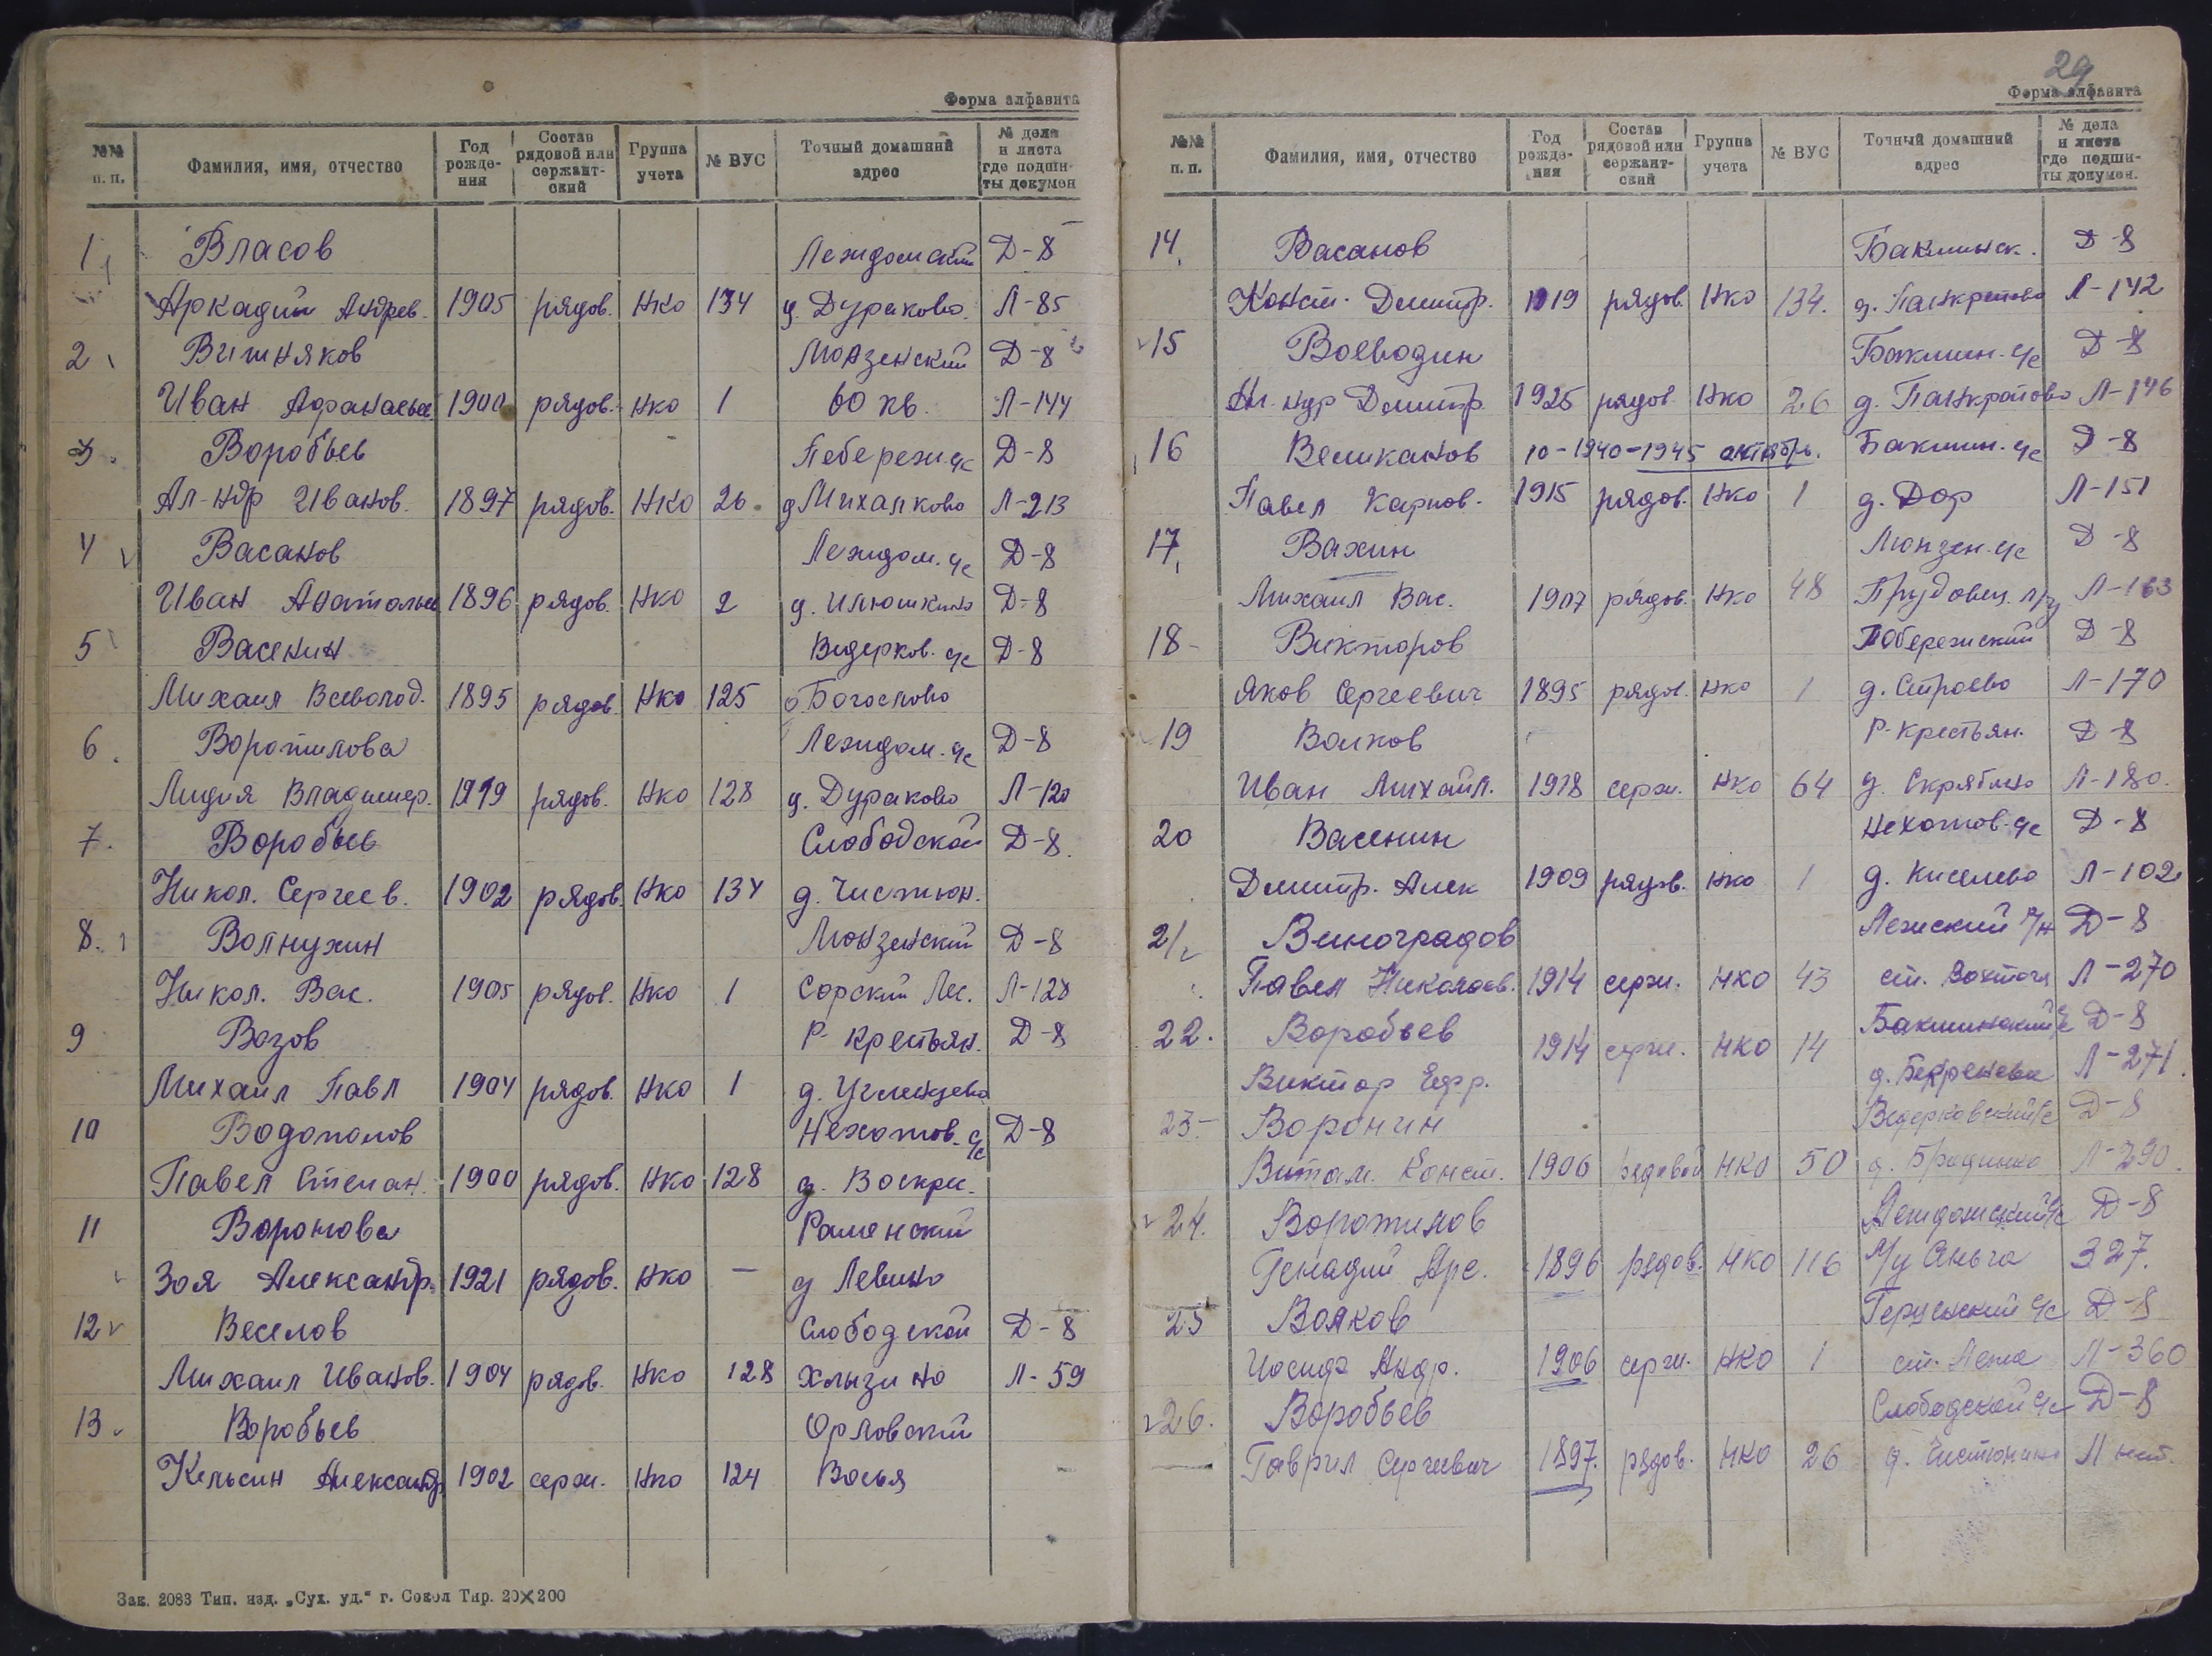 Форма алфавита
№№ п. п. Фамилия, имя, отчество Год рождения Состав рядовой или сержантский Группа учета № ВУС Точный домашний адрес № дела и листа где подшиты докумен
1 Власов Леждомский Д-8
Аркадий Андрев. 1905 рядов. НКО 134 д. Дураково. Л-85
2 Вишняков Монзенский Д-8
Иван Афанасьев 1900 рядов. НКО 1 60 кв. Л-144
3. Воробьев Д-8
Ал-ндр Иванов. 1897 рядов. НКО 26. д Михалково Л-213
4 Васанов Лежидом. с/с Д-8
Иван Анатольев 1896 рядов. НКО 2 д. Илюшкино Д-8
5 Васенин Ведерков. с/с Д-8
Михаил Всеволод. 1895 рядов. НКО 125 Богослово
6. Воротилова Лежидом. с/с Д-8
Лидия Владимер. 1919 рядов. НКО 128 д. Дураково Л-120
7. Воробьев Слободской Д-8.
Никол. Сергеев. 1902 рядов. НКО 134 д. Чистюн.
8. Волнухин Монзенский Д-8
Никол. Вас. 1905 рядов. НКО 1 Сорский Лес. Л-128
9 Возов Р-Крестьян. Д-8
Михаил Павл 1904 рядов. НКО 1 д. Угленцево
10 Водополов Нехотов. с/с Д-8
Павел Степан. 1900 рядов. НКО 128 д. Воскрес.
11 Воронова Раменский
Зоя Александр. 1921 рядов. НКО — д Левино
12 Веселов Слободской Д-8
Михаил Иванов. 1904 рядов. НКО 128 Хлызино Л-59
13. Воробьев Орловский
Кельсин Александр 1902 серж. НКО 124 Восья
Зак. 2083 Тип. изд. „Сух. уд.“ г. Сокол Тир. 20×200
29
Форма алфавита
№№ п. п. Фамилия, имя, отчество Год рождения Состав рядовой или сержантский Группа учета № ВУС Точный домашний адрес № дела и листа где подшиты докумен.
14. Васанов Баклинск. Д-8
Конст. Дмитр. 1919 рядов. НКО 134. д. Панкратово Л-142
15 Воеводин Баклин. с/с Д-8
Ал. ндр Дмитр. 1925 рядов. НКО 26 д. Панкратово Л-146
16 Великанов 10-1940-1945 октябрь. Баклин. с/с Д-8
Павел Карпов. 1915 рядов. НКО 1 д. Дор Л-151
17. Вахин Монзен. с/с Д-8
Михаил Вас. 1907 рядов. НКО 48 Прудовец. Л-163
18- Викторов Побережский Д-8
Яков Сергеевич 1895 рядов. НКО 1 д. Строево Л-170
19 Волков Р-Крестьян. Д-8
Иван Михайл. 1918 серж. НКО 64 д. Скрябино Л-180.
20 Васенин Нехотов. с/с Д-8
Дмитр. Алек 1909 рядов. НКО 1 д. Киселево Л-102
21 Виноградов Лежский р/н Д-8
Павел Николаев. 1914 серж. НКО 43 ст. Вохтога Л-270
22. Воробьев Баклинский с/с Д-8
Виктор Ефр. 1914 серж. НКО 14 Л-271.
23- Воронин Ведерковский с/с Д-8
Витал. Конст. 1906 рядовой НКО 50 Л-290.
24. Воротилов Лежидомский с/с Д-8
Генадий Арс. 1896 рядов. НКО 116 327.
25 Волков с/с Д-8
Иосиф Андр. 1906 серж. НКО 1 ст. Лежа Л-360
26. Воробьев Слободской с/с Д-8
Гаврил Сергеевич 1897. рядов. НКО 26 д. Чистюнино Л нет.